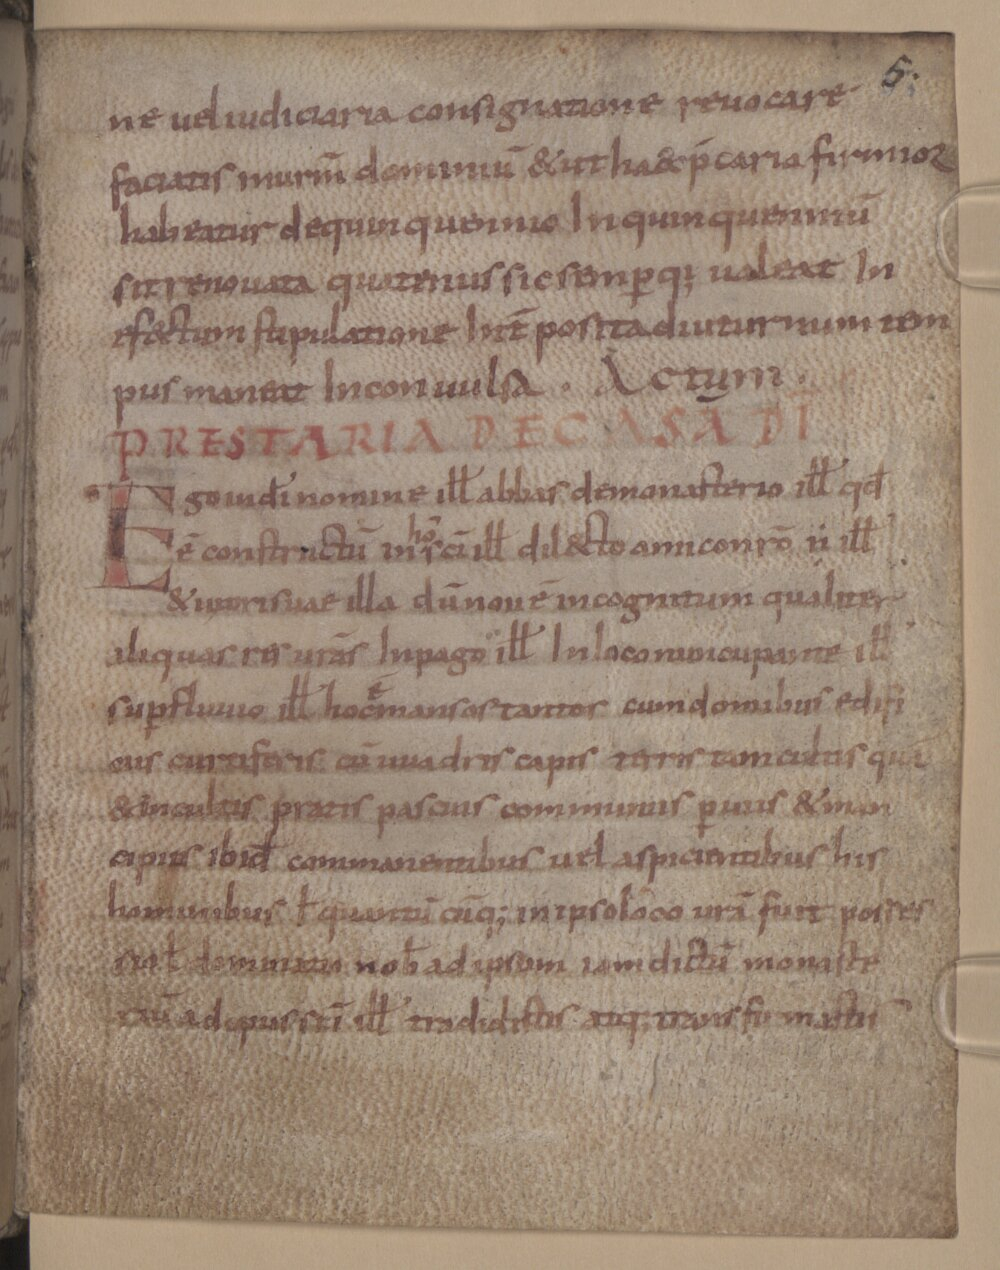 5.
ne uel iudiciaria consignatione reuocare
faciatis in urm̄ dominiū & ut haec p̄caria firmior
habeatur de quinquennio In quinquenniū
sit renouata quatenus sic semp̱ q; ualeat In
efectum stipulatione Int̄ posita diuturnum tem
pus maneat Inconuulsa . Actum .
PRESTARIA DE CASA DĪ
Ego in dī nomine ill abbas de monasterio ill qd̄
ē constructū in honōr sc̄i ill dilecto amico nr̄o ii ill
& uxoris uae illa dū non ē incognitum qualiter
aliquas res ur̄as In pago ill In loco nuncupante ill
sup̱ fluuio ill hoc ē mansos tantos cum domibus edifi
ciis curtiferis cū uuadriscapis teris tam cultis quā
& incultis pratis pascuis communiis p̱uiis & man
cipiis ibid̄ commanentibus uel aspicientibus his
hominibus ł quantū cūq; in ipso loco ur̄a fuit posses
sio ł dominatio nob̄ ad ipsum iam dictū monaste
riū ad opus sc̄i ill tradidistis atq; transfirmastis